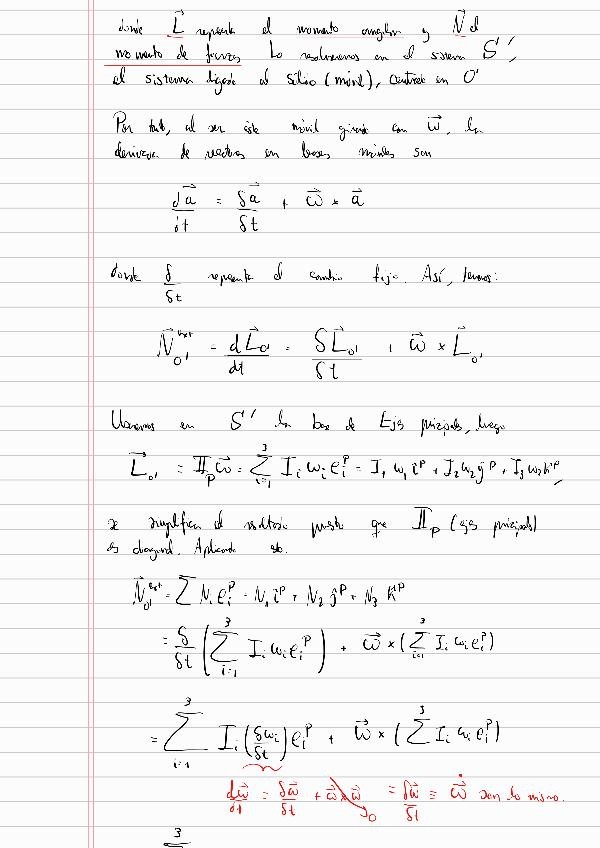 donde \vec{L} representa el momento angular y \vec{N} el
momento de fuerzas. Lo resolveremos en el sistema S',
el sistema ligado al sólido (móvil), centrado en O'
Por tanto, al ser este móvil girando con \vec{ω}, la
derivada de vectores en bases móviles son
\frac{d\vec{a}}{dt} = \frac{δ\vec{a}}{δt} + \vec{ω} × \vec{a}
donde \frac{δ}{δt} representa el cambio fijo. Así, tenemos:
\vec{N}_{O'}^{ext} = \frac{d\vec{L}_{O'}}{dt} = \frac{δ\vec{L}_{O'}}{δt} + \vec{ω} × \vec{L}_{O'}
Usaremos en S' la base de Ejes principales, luego
\vec{L}_{O'} = II_p \vec{ω} = \sum_{i=1}^{3} I_i ω_i e_i^p = I_1 ω_1 i^p + I_2 ω_2 j^p + I_3 ω_3 k^p,
se simplifica el resultado puesto que II_p (ejes principales)
es diagonal. Aplicando esto.
\vec{N}_{O'}^{ext} = \sum N_i e_i^p = N_1 i^p + N_2 j^p + N_3 k^p
= \frac{δ}{δt} ( \sum_{i=1}^{3} I_i ω_i e_i^p ) + \vec{ω} × ( \sum_{i=1}^{3} I_i ω_i e_i^p )
= \sum_{i=1}^{3} I_i ( \frac{δω_i}{δt} ) e_i^p + \vec{ω} × ( \sum^{3} I_i ω_i e_i^p )
\frac{d\vec{ω}}{dt} = \frac{δ\vec{ω}}{δt} + \vec{ω} × \vec{ω} → 0 = \frac{δ\vec{ω}}{δt} ≡ \dot{\vec{ω}} son lo mismo.
3